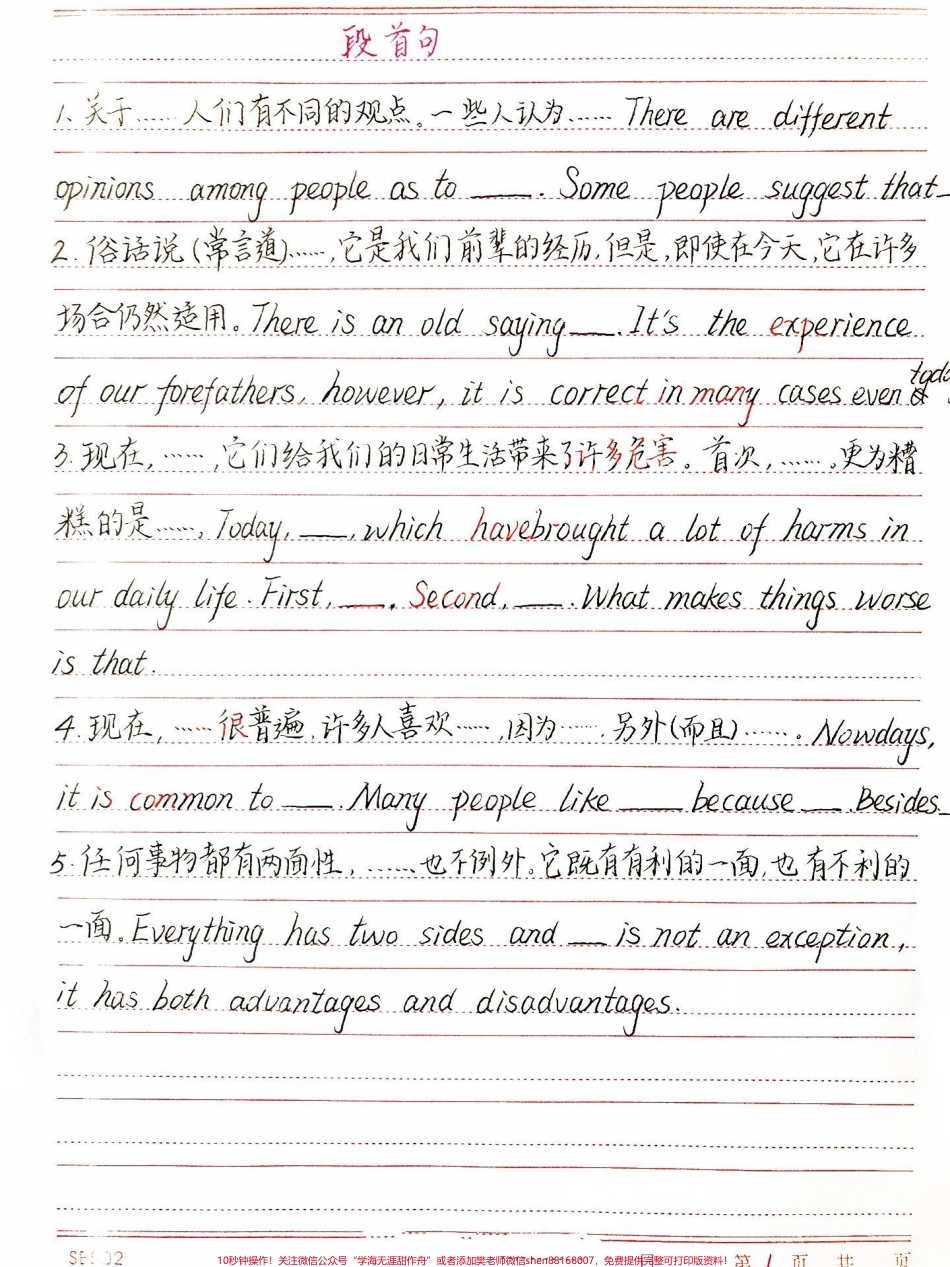 段首句
1. 关于…… 人们有不同的观点。一些人认为…… There are different
opinions among people as to ___. Some people suggest that_
2. 俗话说(常言道)……,它是我们前辈的经历,但是,即使在今天,它在许多
场合仍然适用。There is an old saying___. It's the experience
of our forefathers, however, it is correct in many cases even
3. 现在, ……,它们给我们的日常生活带来了许多危害。首次, ……。更为糟
糕的是……, Today, ___, which havebrought a lot of harms in
our daily life. First, ___. Second, ___. What makes things worse
is that.
4. 现在, ……很普遍,许多人喜欢……,因为……,另外(而且)……。Nowdays,
it is common to ___. Many people like ___ because ___. Besides_
5. 任何事物都有两面性, ……也不例外。它既有有利的一面,也有不利的
一面。Everything has two sides and ___ is not an exception,
it has both advantages and disadvantages.
10秒钟操作!关注微信公众号“学海无涯甜作舟”或者添加樊老师微信shen88168007,免费提供完整可打印版资料!
第 1 页 共 页